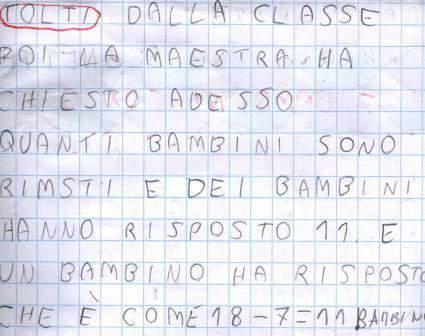 TOLTI DALLA CLASSE
POI LA MAESTRA HA
CHIESTO ADESSO
QUANTI BAMBINI SONO
RIMSTI E DEI BAMBINI
HANNO RISPOSTO 11. E
UN BAMBINO HA RISPOSTO
CHE È COME 18-7=11 BAMBINI